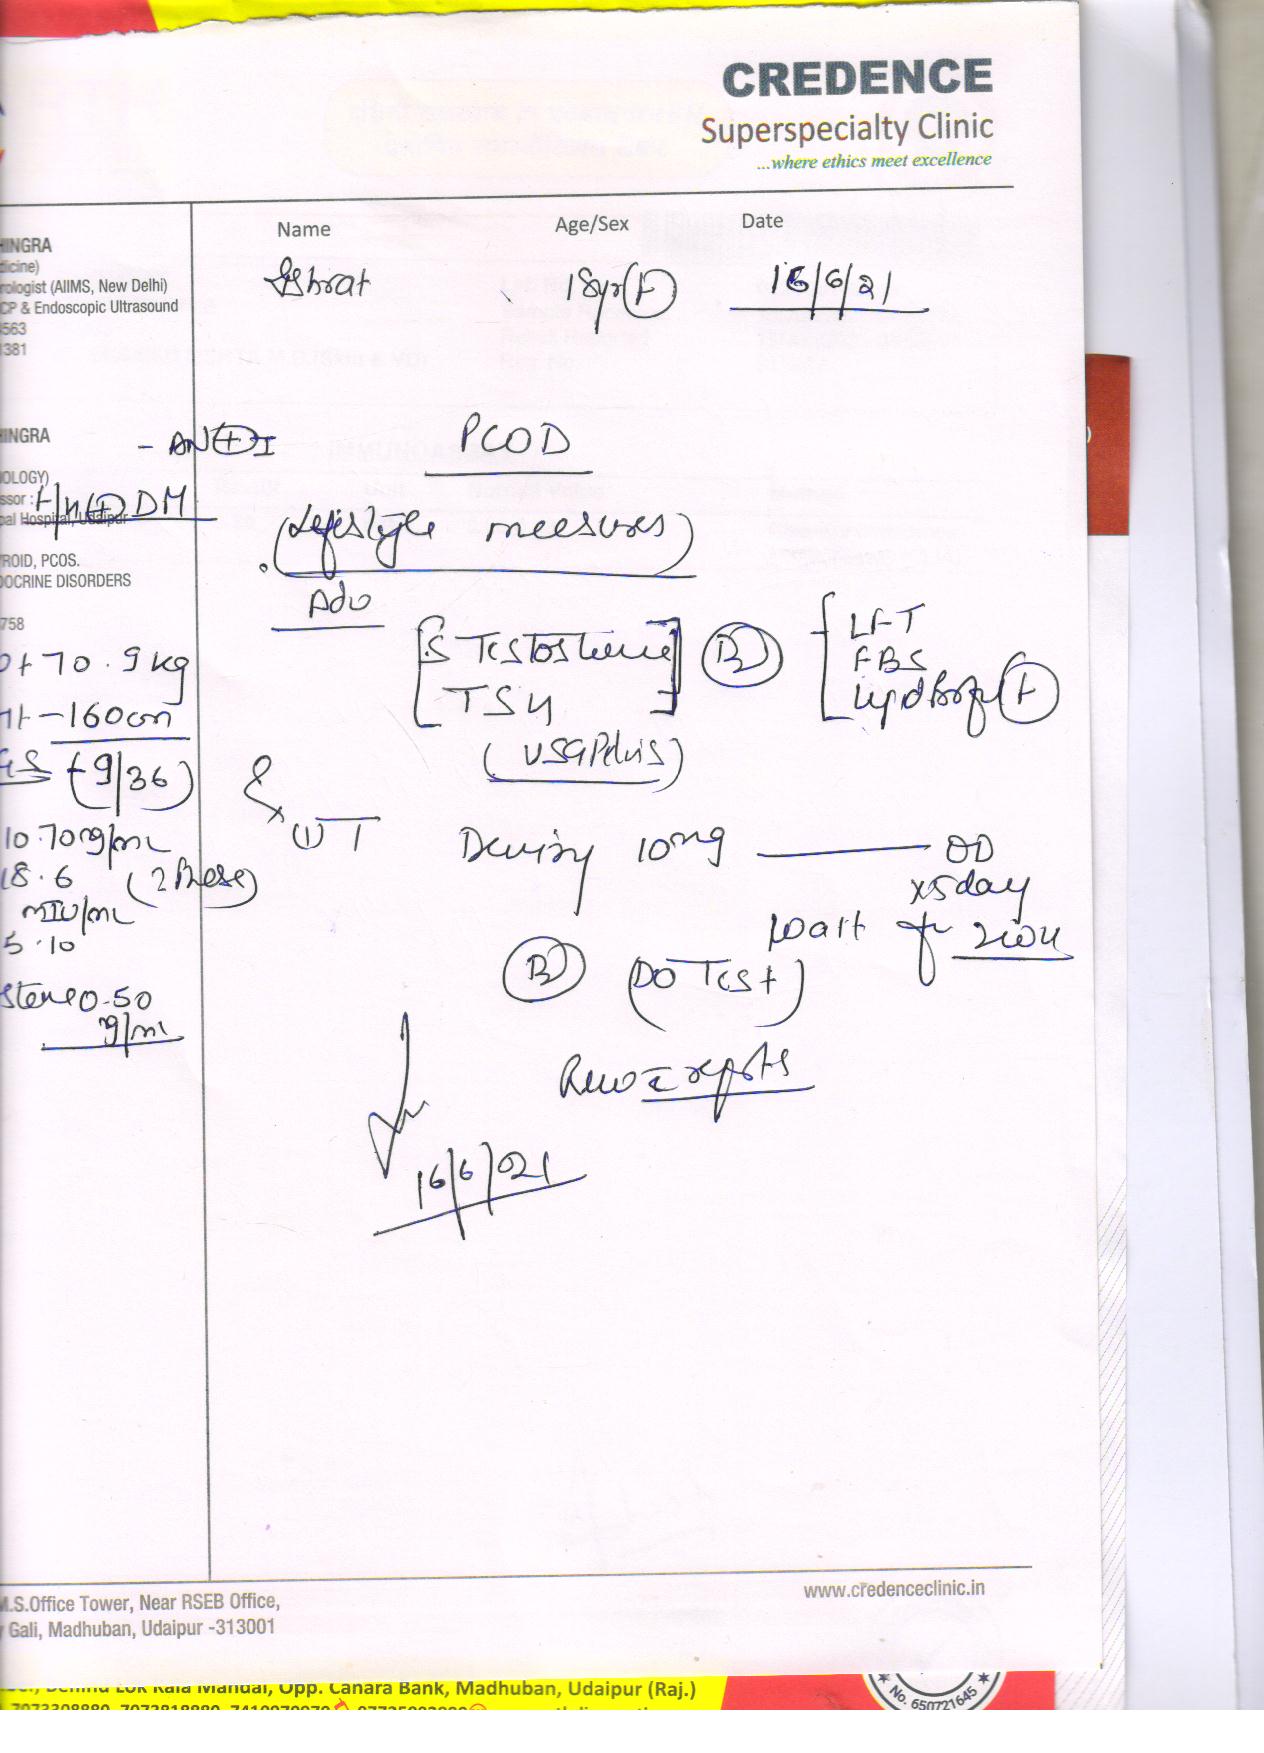 CREDENCE
Superspecialty Clinic
...where ethics meet excellence
Name Age/Sex Date
Ishrat 18yr (F) 16/6/21
HINGRA
dicine)
rologist (AIIMS, New Delhi)
CP & Endoscopic Ultrasound
3563
1381
HINGRA
- AN(+)I
PCOD
OLOGY)
ssor :
pal Hospital, Udaipur
F/H(+) DM
(Lifestyle measures)
ROID, PCOS.
DOCRINE DISORDERS
Adv
758
[S Testosterone] (B) LFT
TSH FBS
(USG Pelvis)
70.9 kg
Ht - 160cm
GS (-9/36)
&
(1) T Deviry 10mg OD
x5day
wait for
10.70 ng/mL
18.6
mIU/mL
5.10
sterone 0.50
ng/ml
(B) (DO Test)
Rev c reports
16/6/21
www.credenceclinic.in
M.S.Office Tower, Near RSEB Office,
Gali, Madhuban, Udaipur -313001
Lok Kala Mandal, Opp. Canara Bank, Madhuban, Udaipur (Raj.)
No. 650721645